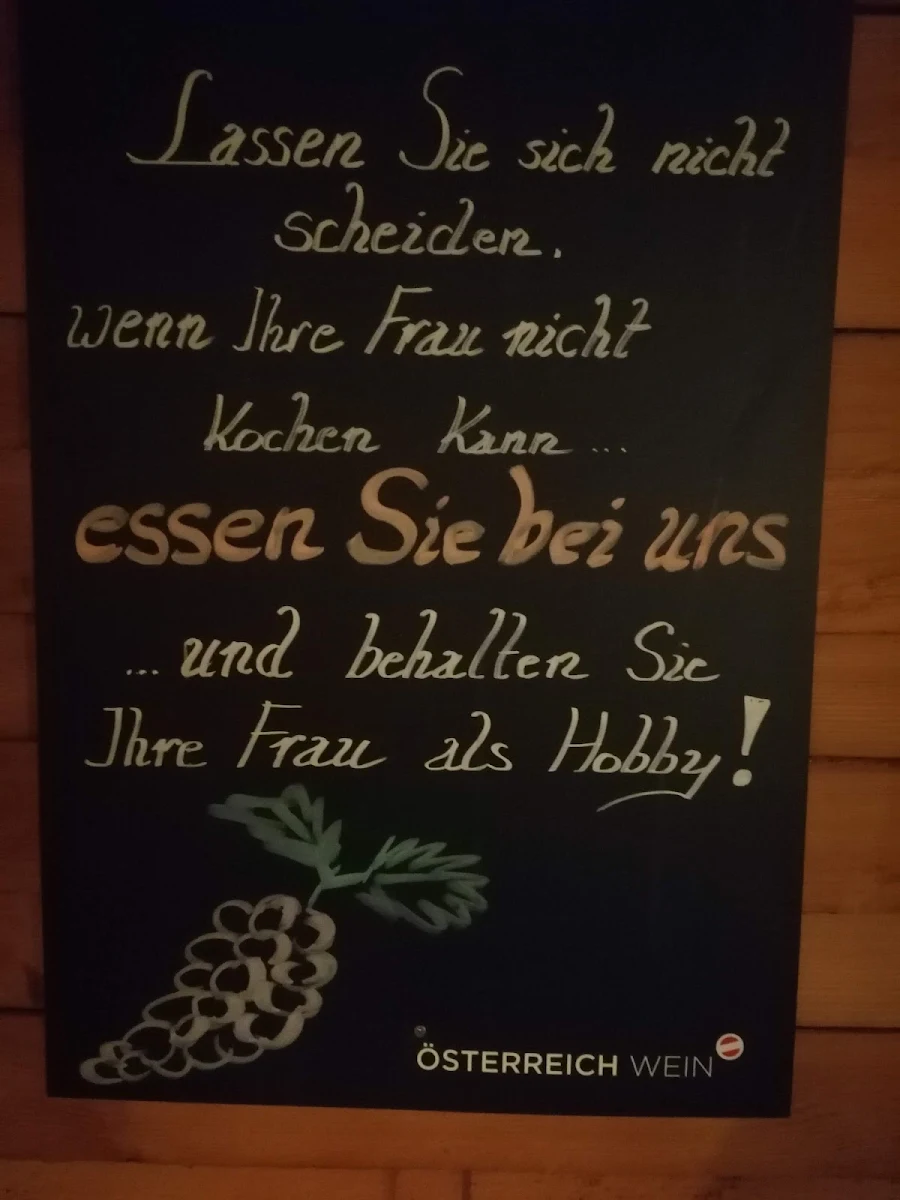 Lassen Sie sich nicht
scheiden.
wenn Ihre Frau nicht
Kochen Kann ...
essen Sie bei uns
... und behalten Sie
Ihre Frau als Hobby!
ÖSTERREICH WEIN